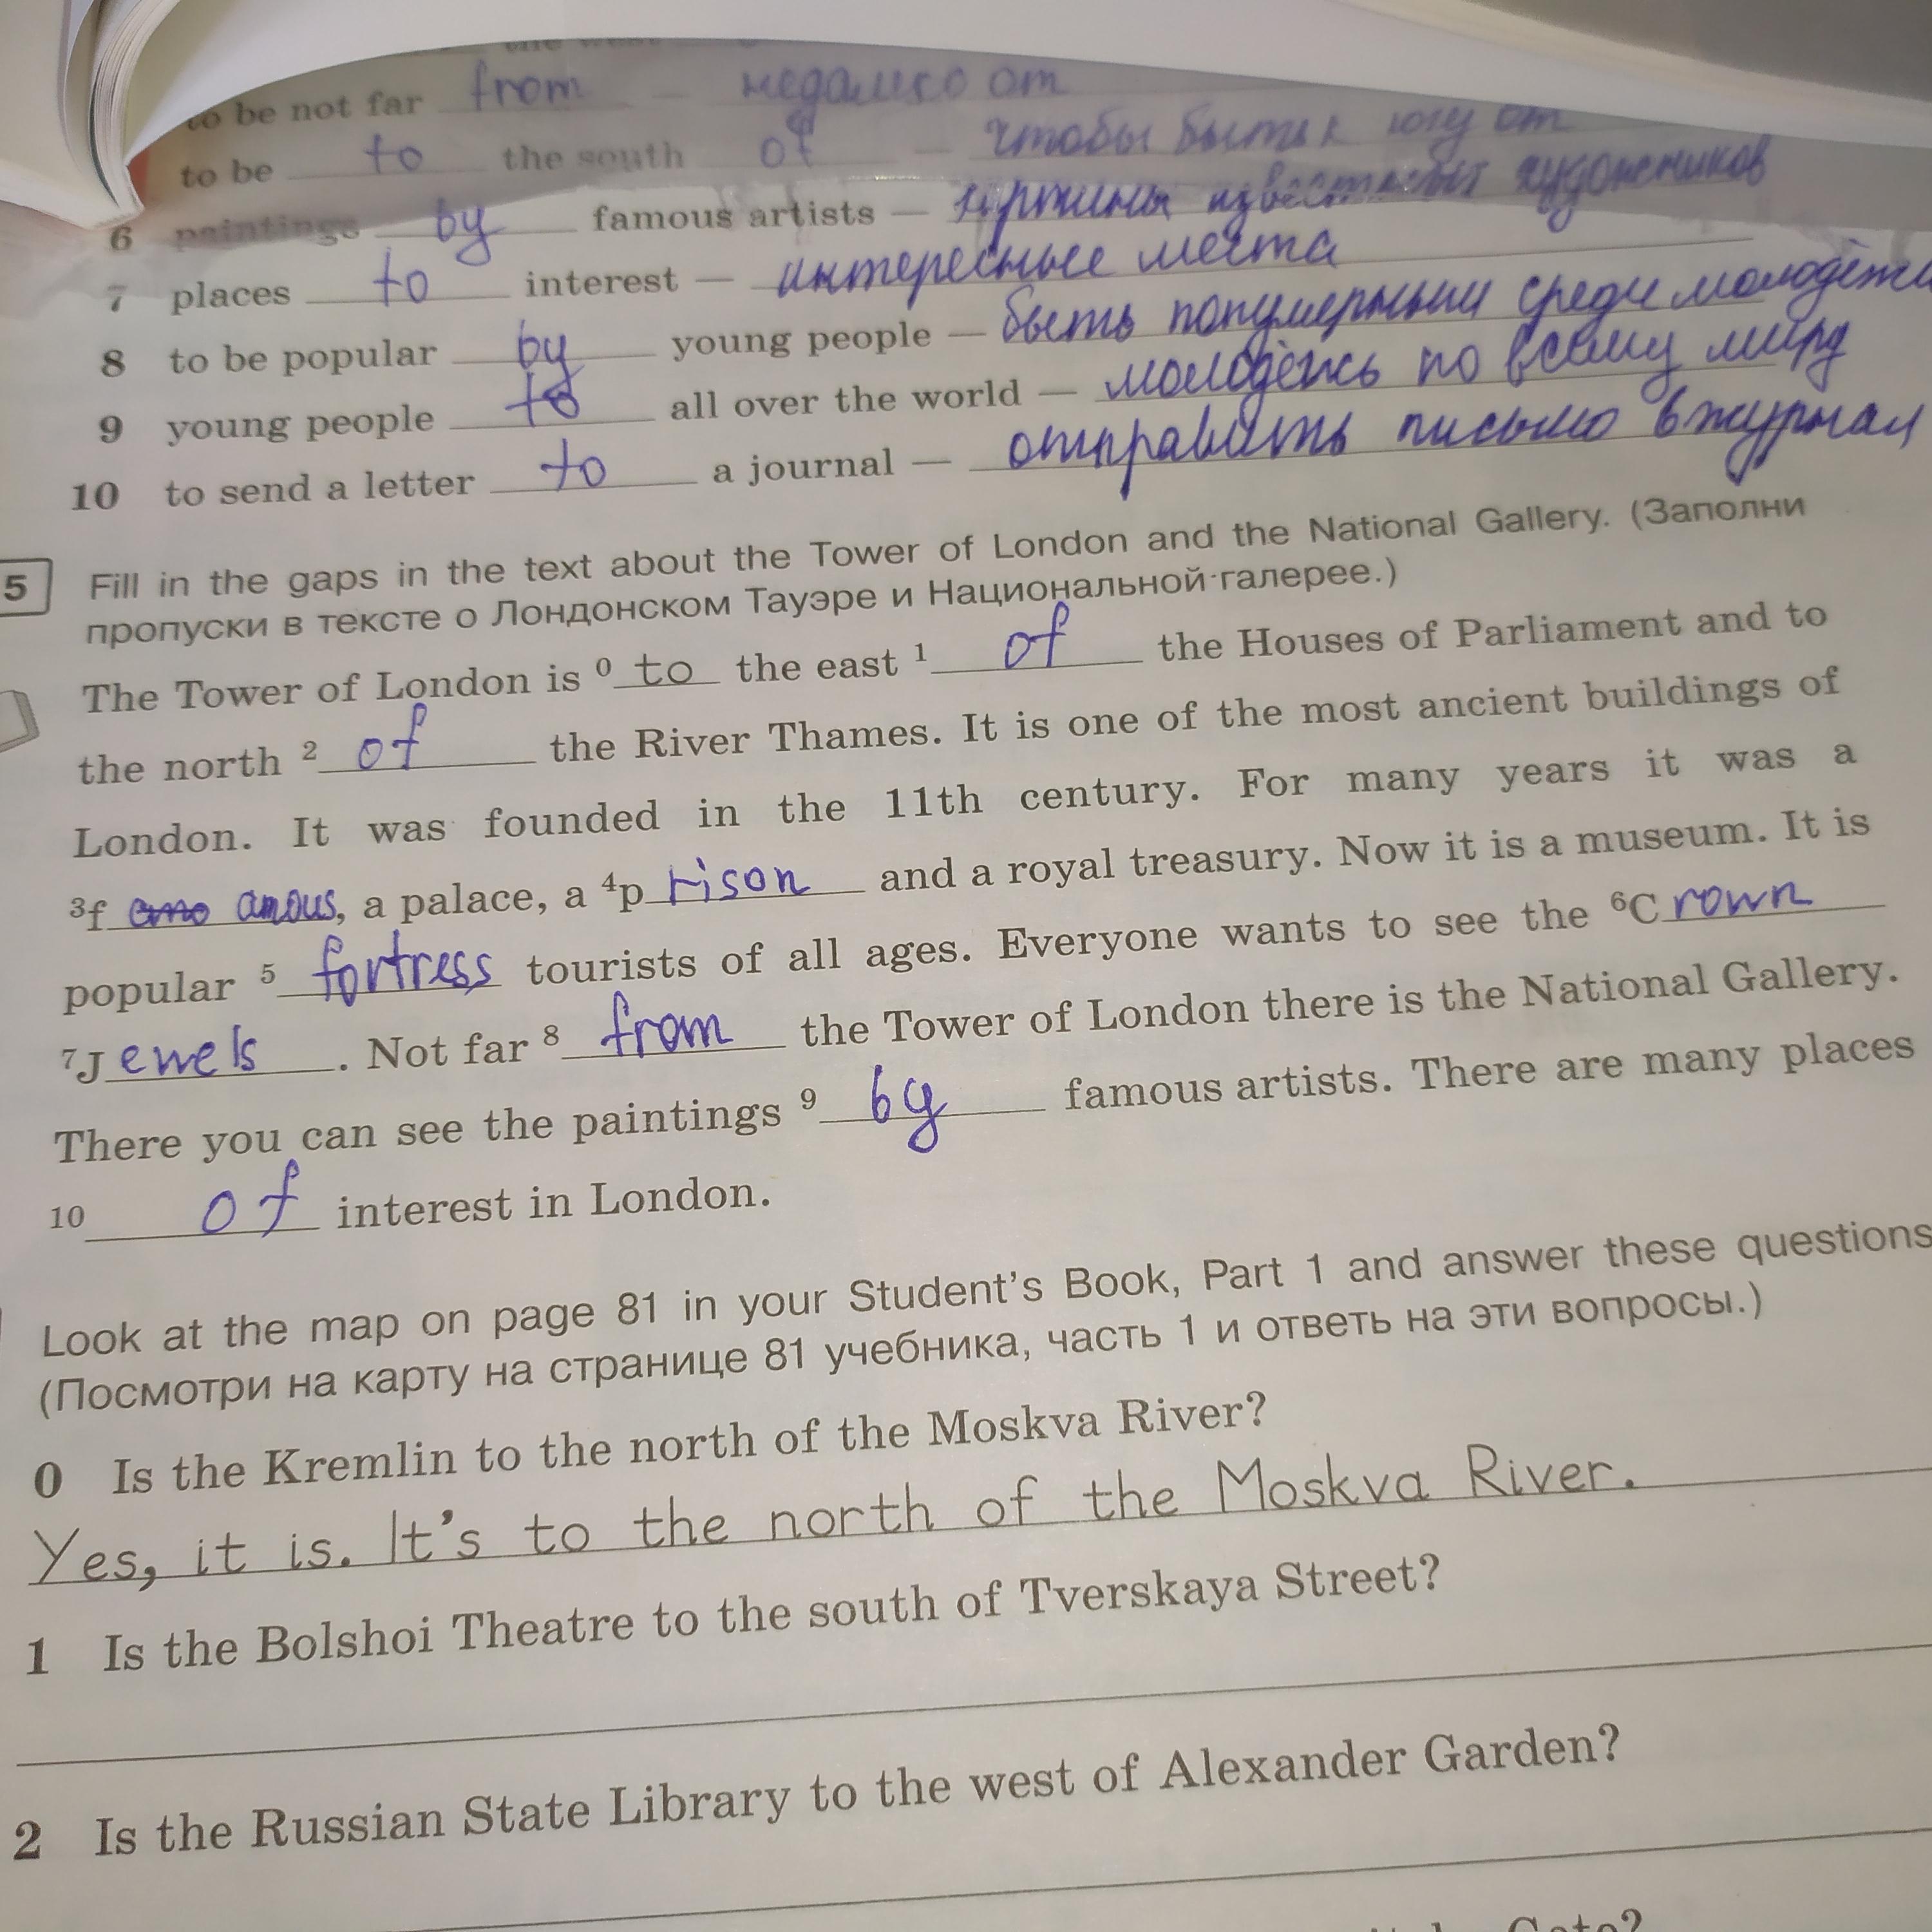 to be not far from — недалеко от
to be to the south of — чтобы быть к югу от
6 paintings by famous artists — картины известных художников
7 places to interest — интересные места
8 to be popular by young people — быть популярным среди молодёжи
9 young people to all over the world — молодёжь по всему миру
10 to send a letter to a journal — отправить письмо в журнал
5 Fill in the gaps in the text about the Tower of London and the National Gallery. (Заполни
пропуски в тексте о Лондонском Тауэре и Национальной галерее.)
The Tower of London is 0 to the east 1 of the Houses of Parliament and to
the north 2 of the River Thames. It is one of the most ancient buildings of
London. It was founded in the 11th century. For many years it was a
3f amous, a palace, a 4p rison and a royal treasury. Now it is a museum. It is
popular 5 fortress tourists of all ages. Everyone wants to see the 6C rown
7J ewels . Not far 8 from the Tower of London there is the National Gallery.
There you can see the paintings 9 by famous artists. There are many places
10 of interest in London.
Look at the map on page 81 in your Student's Book, Part 1 and answer these questions
(Посмотри на карту на странице 81 учебника, часть 1 и ответь на эти вопросы.)
0 Is the Kremlin to the north of the Moskva River?
Yes, it is. It's to the north of the Moskva River.
1 Is the Bolshoi Theatre to the south of Tverskaya Street?
2 Is the Russian State Library to the west of Alexander Garden?